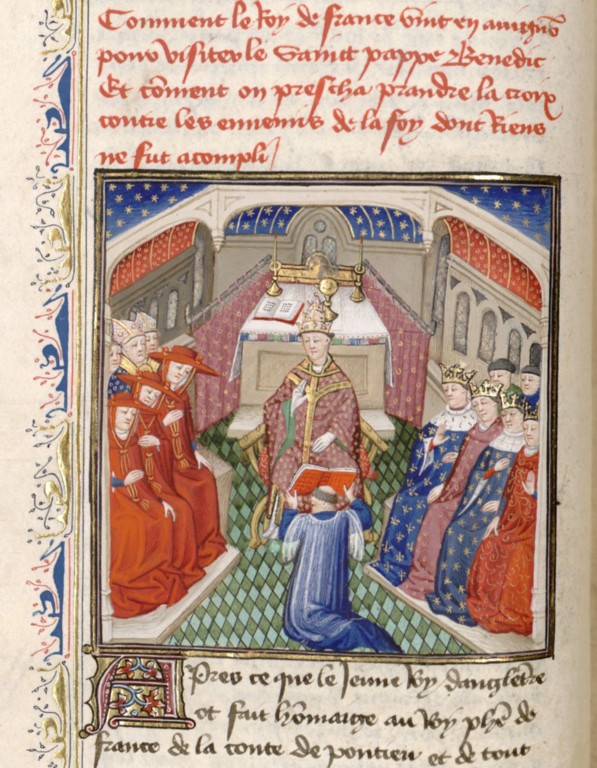 Comment le Roy de france vint en auignō
pour visiter le Sainct pappe Benedic
Et cōment on prescha prandre la croix
contre les ennemis de la foy dont Riens
ne fut acompli
Apres ce que le Jeune Roy dangletre
ot fait hōmaige au Roy phē de
france de la conte de pontieu et de tout